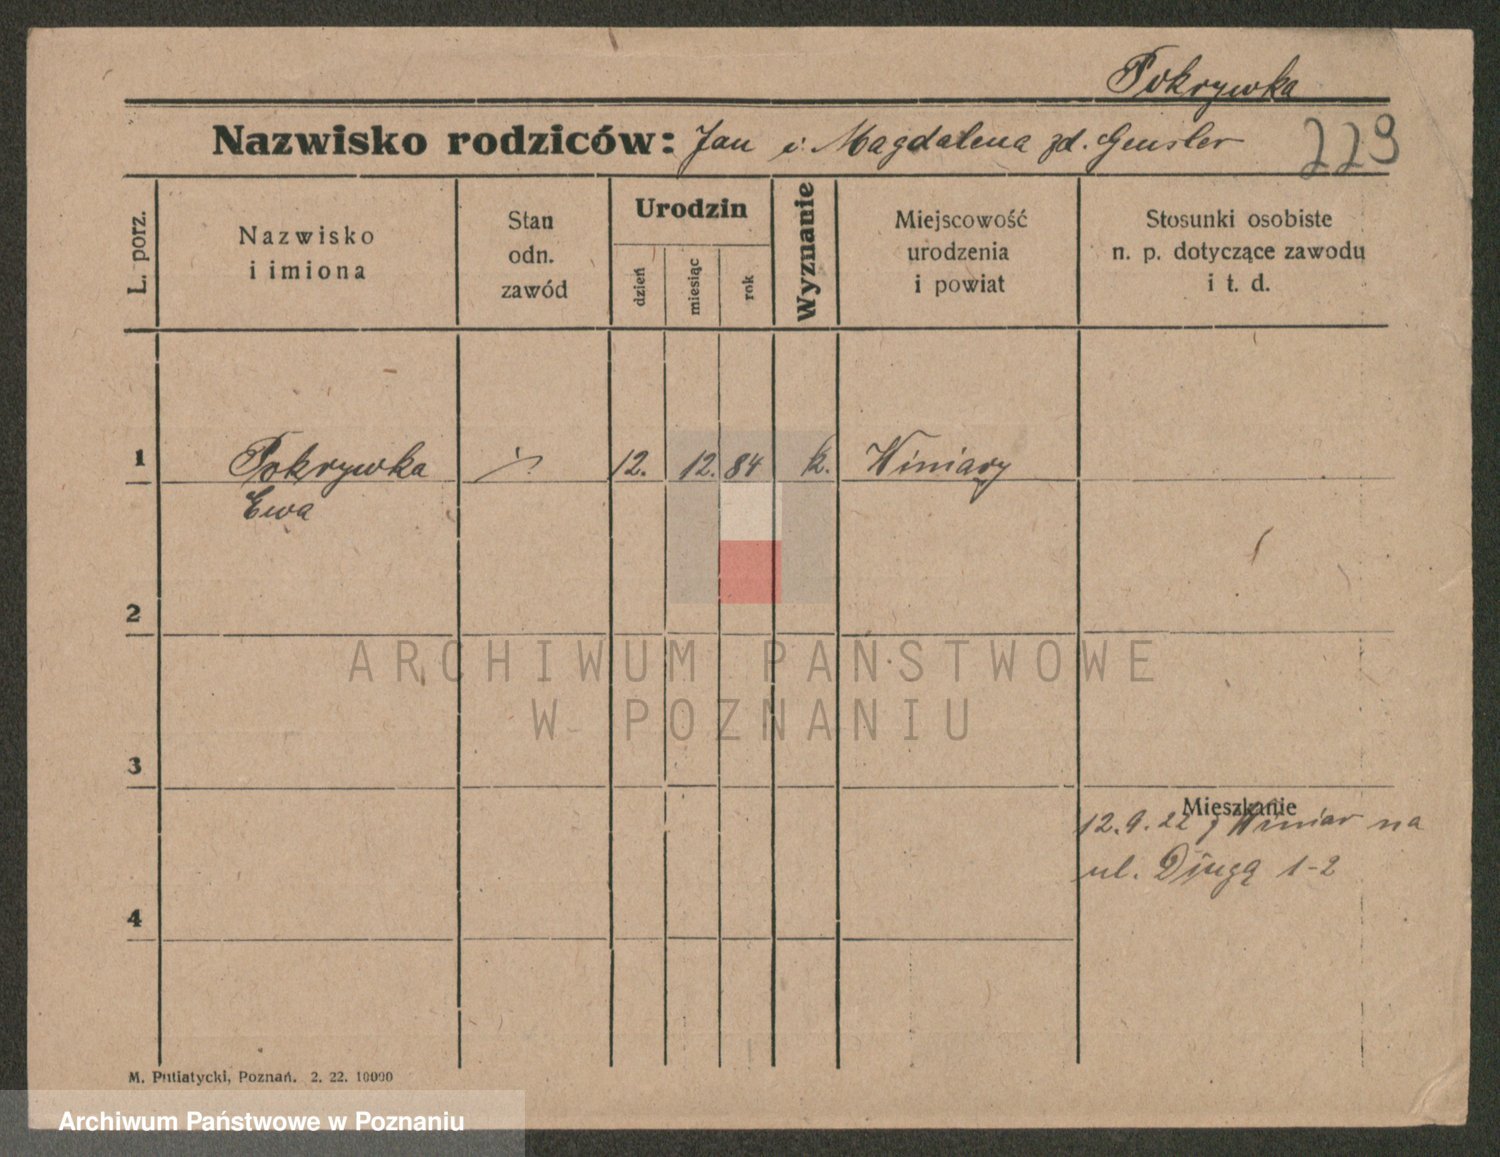 Pokrzywka
Nazwisko rodziców: Jan i Magdalena zd. Gensler
229
L. porz.
Nazwisko
i imiona
Stan
odn.
zawód
Urodzin
dzień
miesiąc
rok
Wyznanie
Miejscowość
urodzenia
i powiat
Stosunki osobiste
n. p. dotyczące zawodu
i t. d.
1
Pokrzywka
Ewa
12.
12.
84
k.
Winiary
2
3
4
Mieszkanie
12.9.22 z Winiar na
ul. Długą 1-2
ARCHIWUM PAŃSTWOWE
W POZNANIU
M. Putiatycki, Poznań. 2. 22. 10000
Archiwum Państwowe w Poznaniu